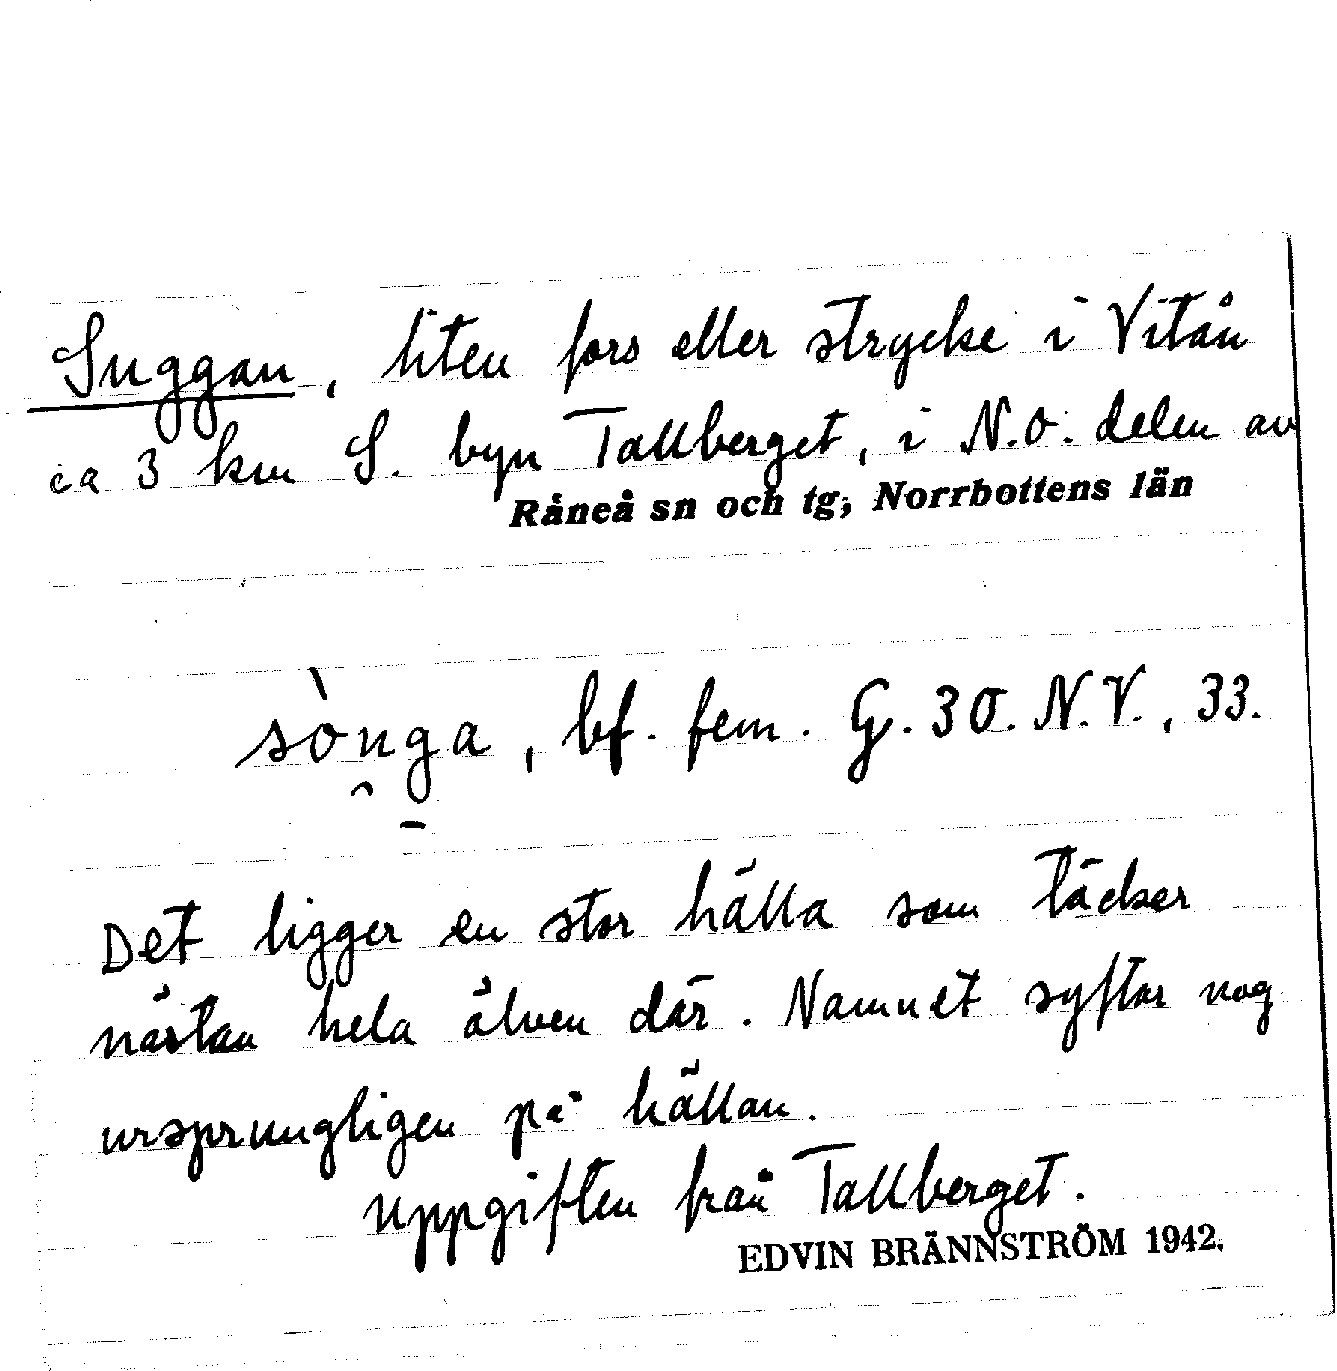 Suggan, liten fors eller strycke i Vitån
ca 3 km S. byn Tallberget, i N.O. delen av
Råneå sn och tg, Norrbottens län
sònga, bf. fem. G. 30. N.V., 33.
Det ligger en stor hälla som täcker
nästan hela älven där. Namnet syftar nog
ursprungligen på hällan.
Uppgiften från Tallberget.
EDVIN BRÄNNSTRÖM 1942.